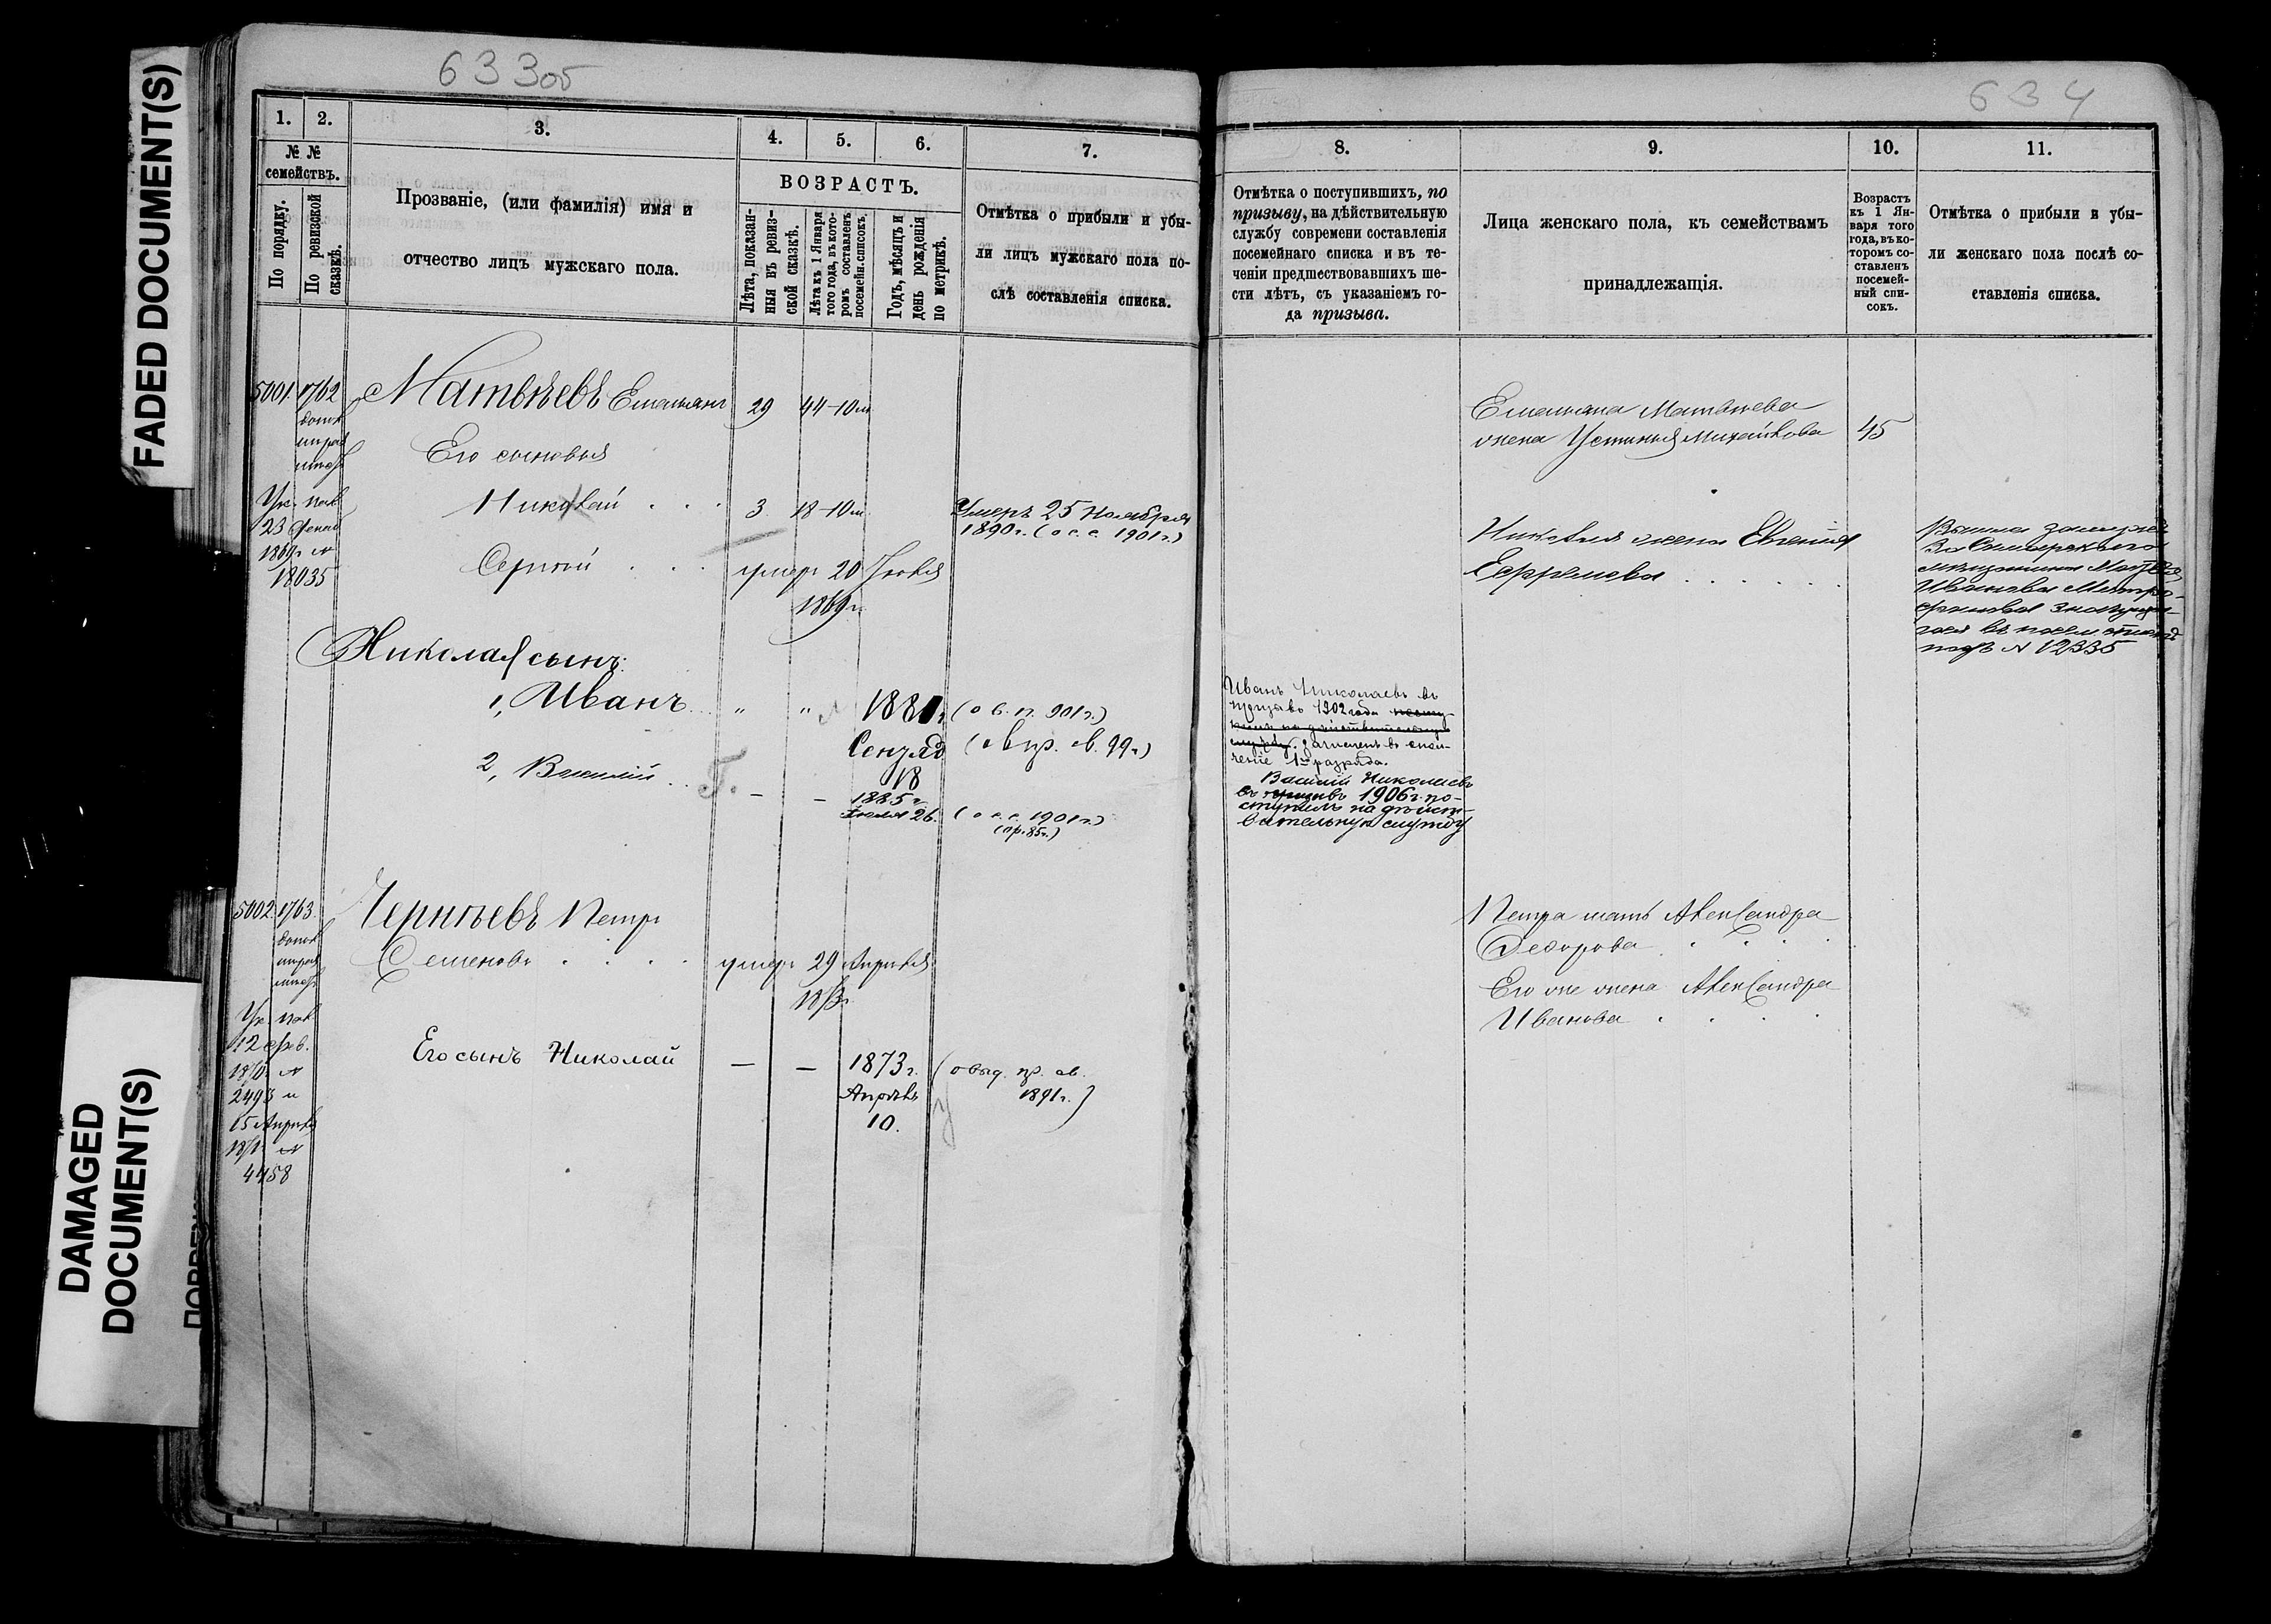 FADED DOCUMENT(S)
DAMAGED
DOCUMENT(S)
633об
1.
2.
3.
4.
5.
6.
7.
№ №
семействъ.
По порядку.
По ревизской
сказкѣ.
Прозваніе, (или фамилія) имя и
отчество лицъ мужскаго пола.
ВОЗРАСТЪ.
Лѣта, показан-
ныя въ ревиз-
ской сказкѣ.
Лѣта къ 1 Января
того года, въ кото-
ромъ составленъ
посемейн. списокъ.
Годъ, мѣсяцъ и
день рожденія
по метрикѣ.
Отмѣтка о прибыли и убы-
ли лицъ мужскаго пола по-
слѣ составленія списка.
5001. 1762
Матвѣевъ Емельянъ 29 44-10м
Его сыновья
Николай . . . 3 18-10м.
Умеръ 25 Ноября
1890г. (о с. с. 1901г.)
Ук.
23
1869г. №
18035
Сергѣй . . . умеръ 20 Іюля
1869г.
Николая сынъ:
1, Иванъ " " 1881г. (о в. п. 901г.)
(о в пр. св. 99г.)
18
2, Василій . . — —
1885г.
Іюля 26. (о с. с. 1901г.)
(пр. 85г.)
5002 1763
Чернѣевъ Петръ
Семеновъ . . . . умеръ 29 Апрѣля
Ук.
12 фев.
2493 и
15 Апрѣля
4458
Его сынъ Николай — — 1873г.
Апрѣля
10.
(о выд. пр. св.
1891г.)
634
8.
9.
10.
11.
Отмѣтка о поступившихъ, по
призыву, на дѣйствительную
службу современи составленія
посемейнаго списка и въ те-
ченіи предшествовавшихъ ше-
сти лѣтъ, съ указаніемъ го-
да призыва.
Лица женскаго пола, къ семействамъ
принадлежащія.
Возрастъ
къ 1 Ян-
варя того
года, въ ко-
торомъ со-
ставленъ
посемей-
ный спи-
сокъ.
Отмѣтка о прибыли и убы-
ли женскаго пола послѣ со-
ставленія списка.
Емельяна Матвѣева
жена Устинья Михайлова 45
Николая жена Евгенія
Ефремова . . . . . .
Вышла замужъ
За Самарскаго
мѣщанина
Иванова
въ посем. спискѣ
подъ № 12335
Иванъ Николаевъ въ
призывъ 1902 года посту-
пилъ на дѣйствительную
службу. зачисленъ въ опол-
ченіе 1го разряда.
Василій Николаевъ
въ призывъ 1906г. по-
ступилъ на дѣйст-
вительную службу
Петра мать Александра
Федорова . . . .
Его же жена Александра
Иванова . . . .